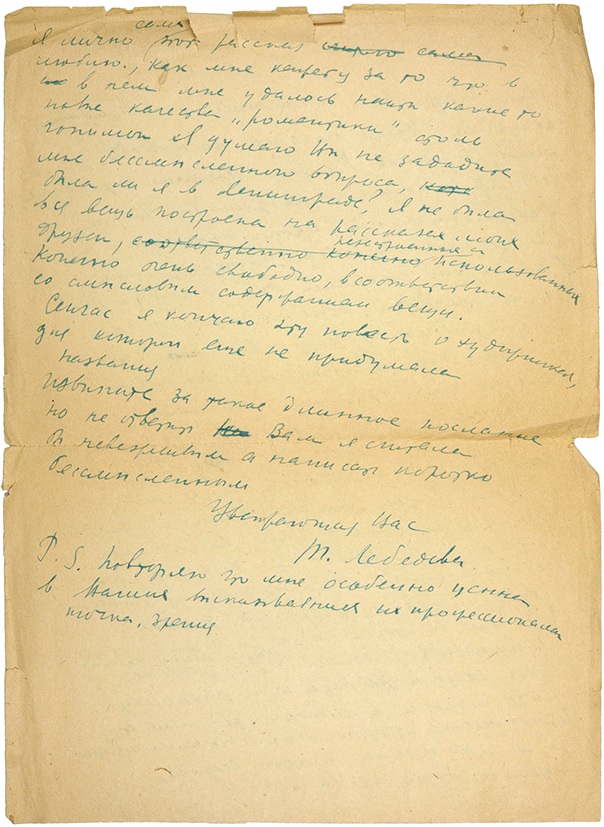 сама
Я лично этот рассказ сама
люблю, как мне кажется за то что в
в нем мне удалось найти какие то
новые качества „романтики" столь
гонимой Я думаю Вы не зададите
мне бессмысленного вопроса,
была ли я в Ленинграде? Я не была
вся вещь построена на рассказах моих
друзей, соответственно конечно использованных
Конечно очень свободно, в соответствии
со смысловым содержанием вещи.
Сейчас я кончаю эту повесть о художниках,
для которой еще не придумала
названия
Извините за такое длинное послание
но не ответить Вам я считала
бы невежливым а написать коротко
бессмысленным
Уважающая Вас
Т. Лебедева.
P. S. Повторяю что мне особенно ценна
в Ваших высказываниях их профессиональная
точка зрения